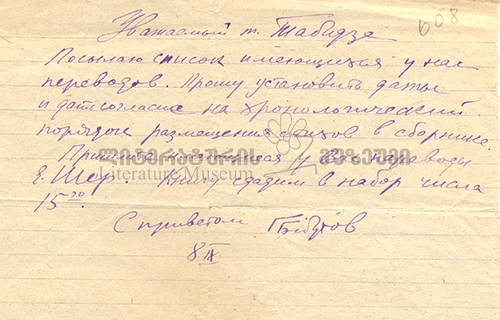 608
Уважаемый т. Табидзе
Посылаю список имеющихся у нас
переводов. Прошу установить даты
и дать согласие на хронологический
порядок размещения стихов в сборнике.
ლიტერატურის მუზეუმი
Literature Museum
у Вас переводы
Е. Шор. Книгу сдадим в набор числа
15го.
С приветом
8 IX